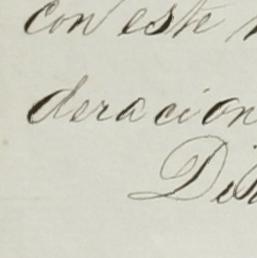 con este
deracion